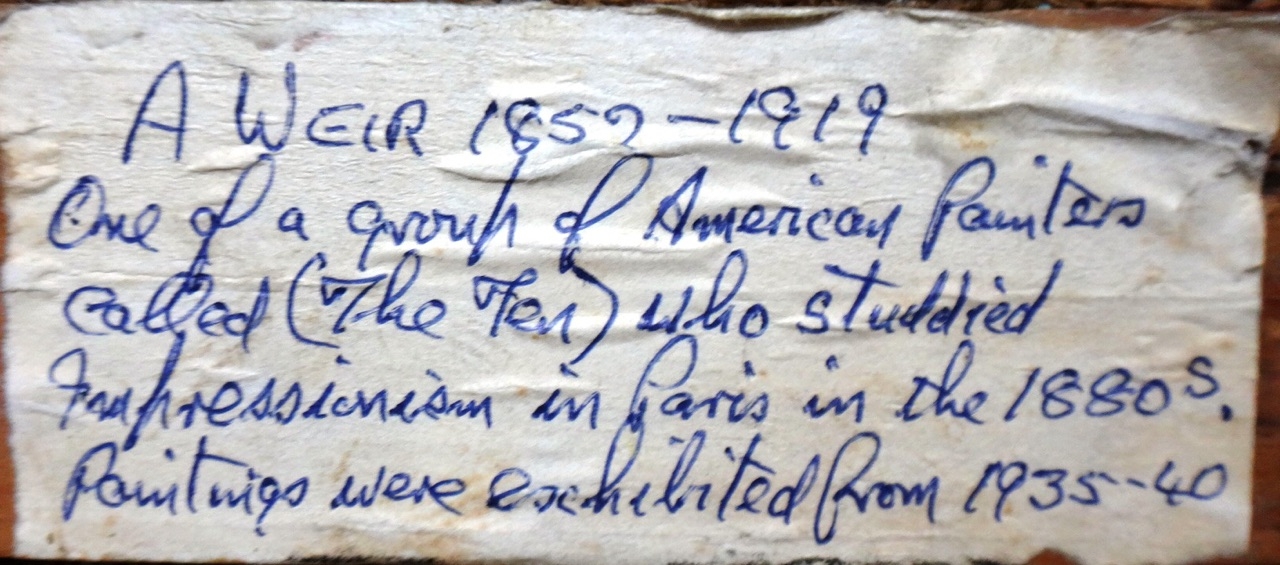 A WEIR 1852-1919
One of a group of American Painters
called (The Ten) who studdied
Impressionism in Paris in the 1880s.
Paintings were exhibited from 1935-40